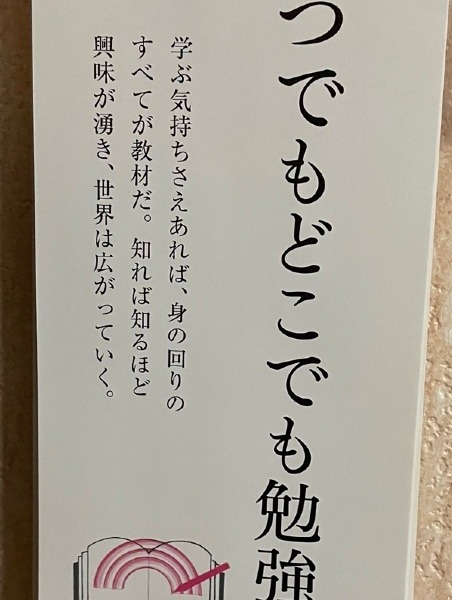 つでもどこでも勉強
学ぶ気持ちさえあれば、身の回りの
すべてが教材だ。知れば知るほど
興味が湧き、世界は広がっていく。